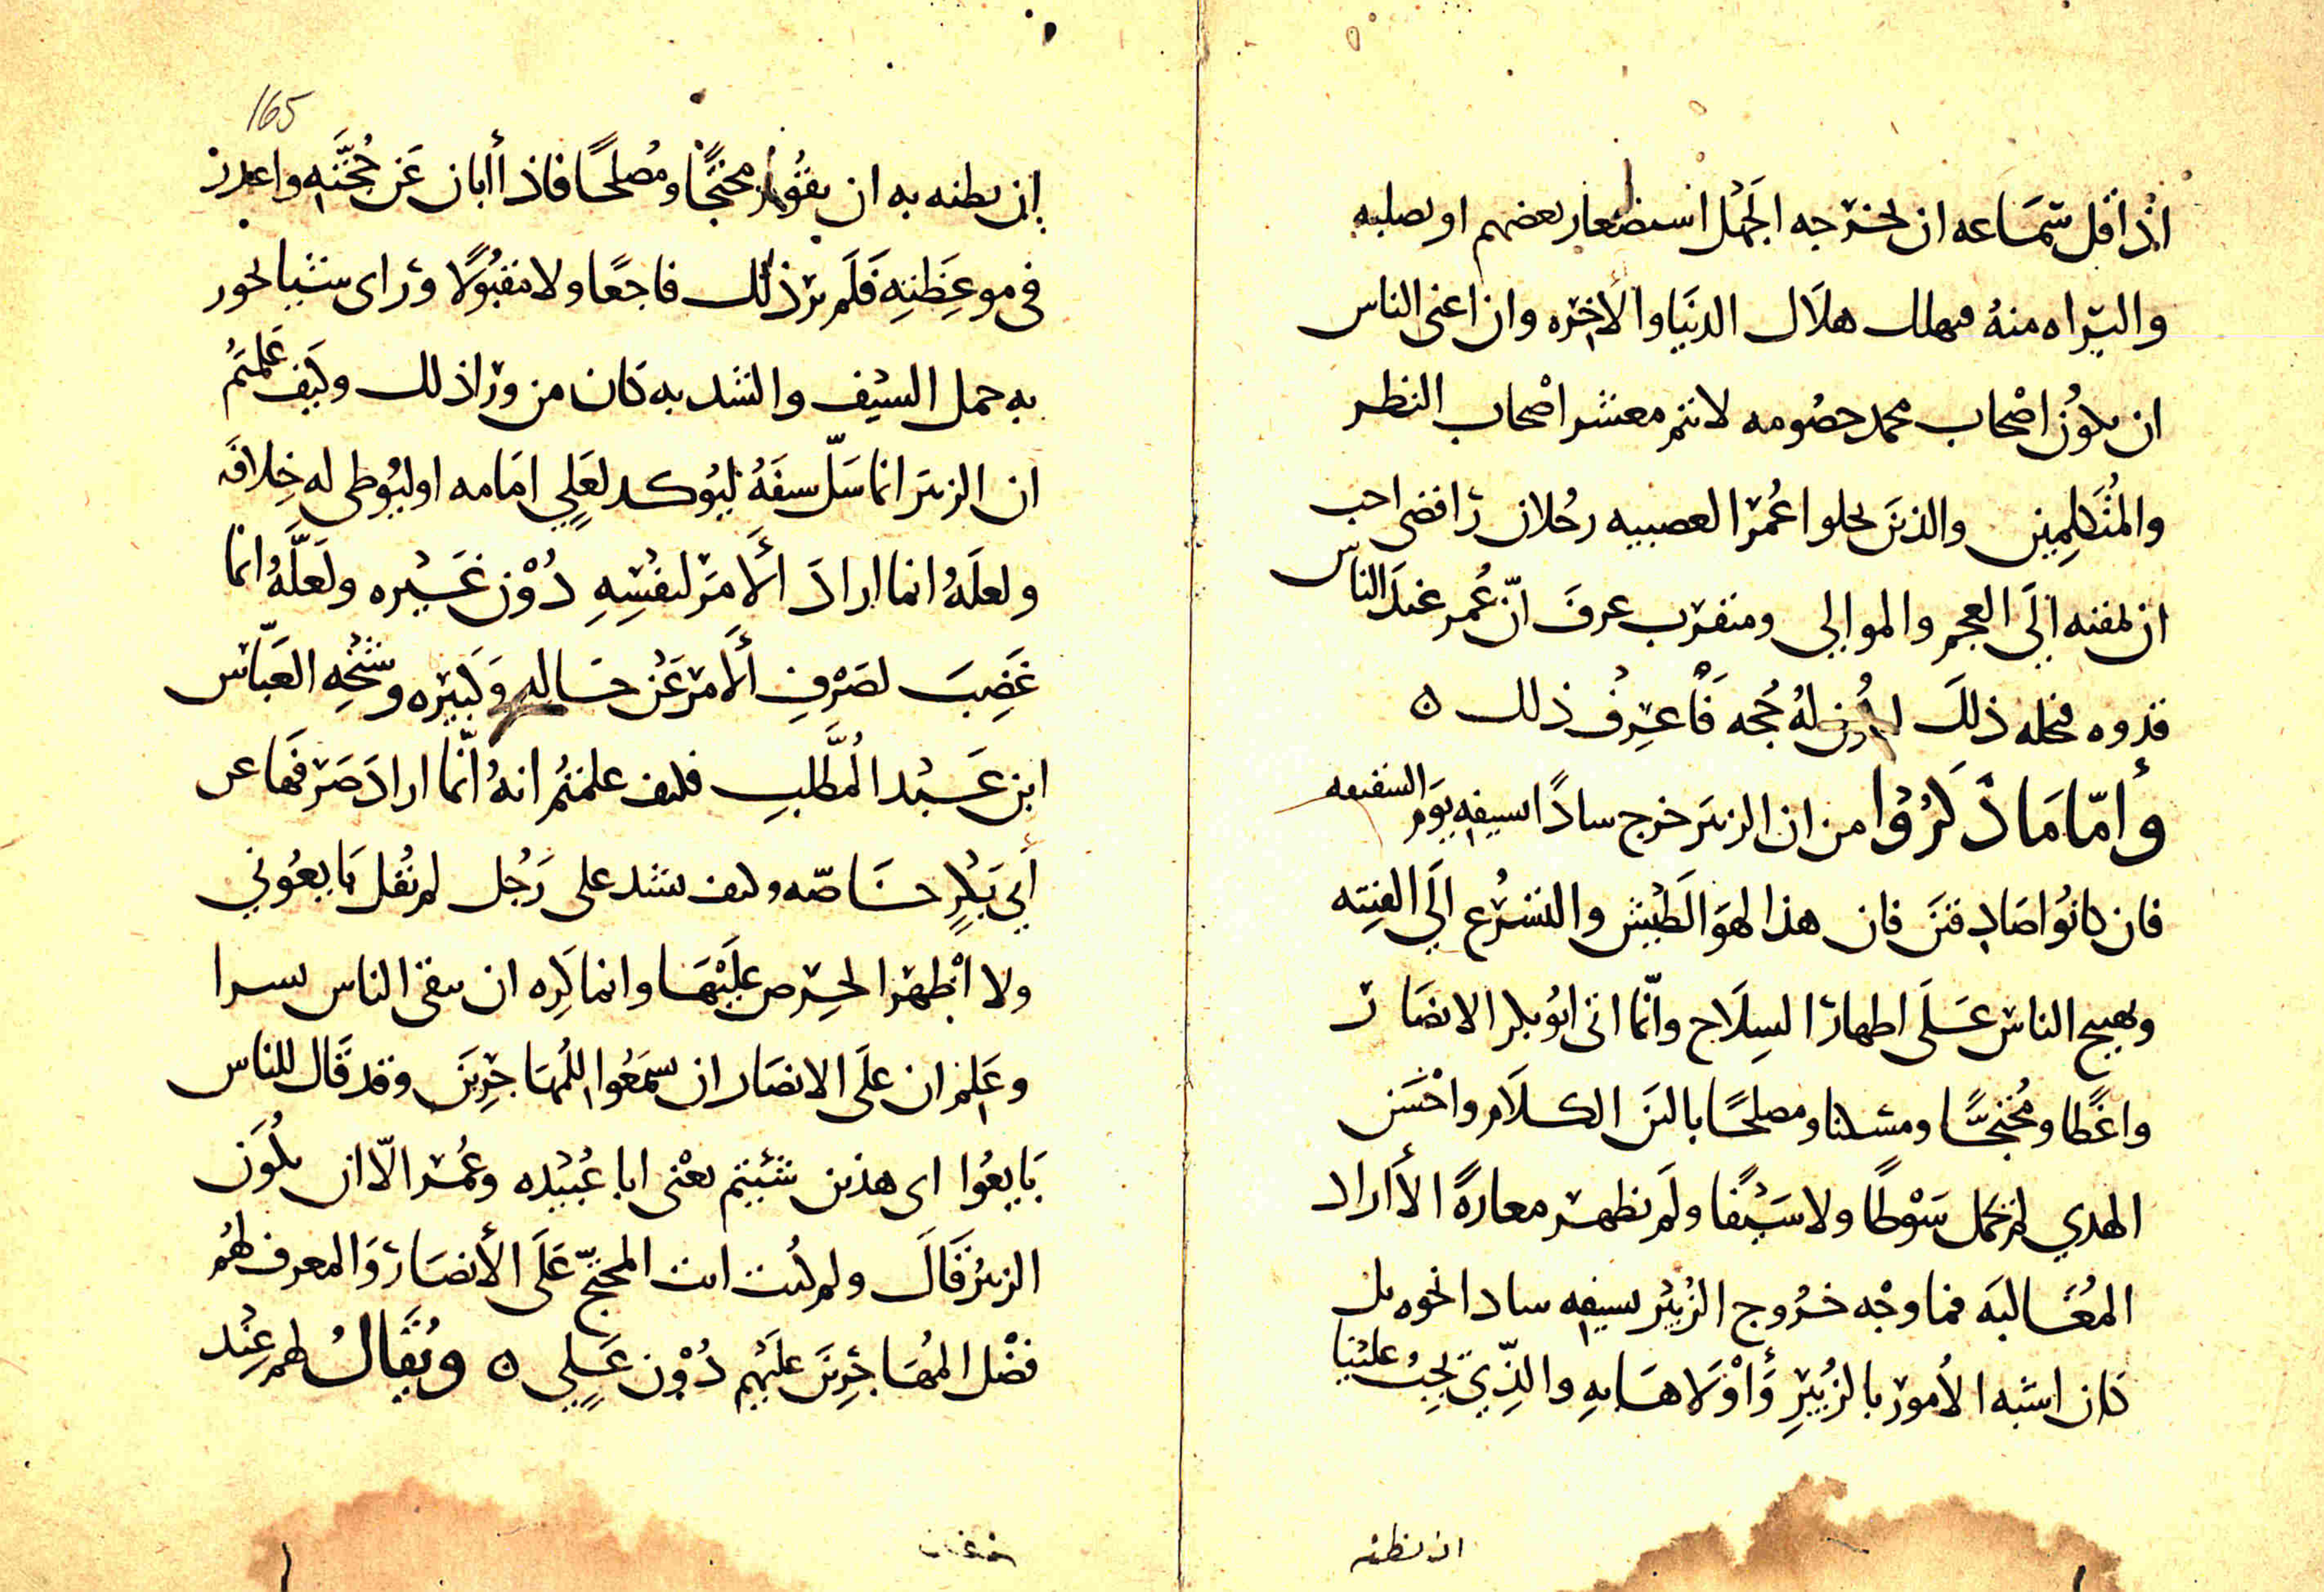 اذا قل سماعه ان يخرجه الجهل استصغار بعضهم او بصلبه
والبراه منه فهلك هلاك الدنيا والاخره وان اغنى الناس
ان يكون اصحاب محمد خصومه لانتم معشر اصحاب النظر
والمتكلمين والذين نحلوا عمر العصبيه رجلان رافضى احب
ان يمقته الي العجم والموالي ومتقرب عرف انّ عمر عند الناس
قدوه فنحله ذلك ليكون له حجه فاعرف ذلك ه
وأمّا ما ذكروا من ان الزبير خرج سادًا بسيفه يوم السقيفه
فان كانوا صادقين فان هذا لهو الطيش والتسرع الي الفتنه
وتهييج الناس على اظهار السلاح وانّما اتى ابو بكر الانصار
واعظا ومحتجًا ومسكنا ومصلحًا بالين الكلام واحسن
الهدي لم يحمل سوطًا ولا سيفا ولم يظهر معازهً الا اراد
المغالبه فما وجه خروج الزبير بسيفه سادا نحوه بل
كان اشبه الأمور بالزبير وأولاها به والذي يجب علينا
ان نظنه
165
ان نظنه به ان يقوم محتجًا ومصلحًا فاذا أبان عن حجته واعذر
فى موعظته فلم ير ذلك ناجعًا ولا مقبولًا وراى سببا يجوز
به حمل السيف والشد به كان من ورا ذلك وكيف علمتم
ان الزبير انما سلّ سيفه ليوكد لعلي امامه او ليوطى له خلافه
ولعله انما اراد ألامر لنفسه دون غيره ولعلّه انما
غضب لصرف ألامر عن خاله وكبيره وشيخه العبّاس
ابن عبد المطّلب فكيف علمتم انه انّما اراد صرفها عن
أبي بكر خاصّه وكيف يشد على رجل لم يقل بايعوني
ولا اظهر الحرص عليها وانما كره ان يبقى الناس نشرا
وعلم ان على الانصار ان يسمعوا للمهاجرين وقد قال للناس
بايعوا اى هذين شيتم يعنى ابا عبيده وعمر الّا ان يكون
الزبير قال ولم كنت انت المحتجّ على الأنصار والمعرف لهم
فضل المهاجرين عليهم دون علي ه ويقال لهم عند